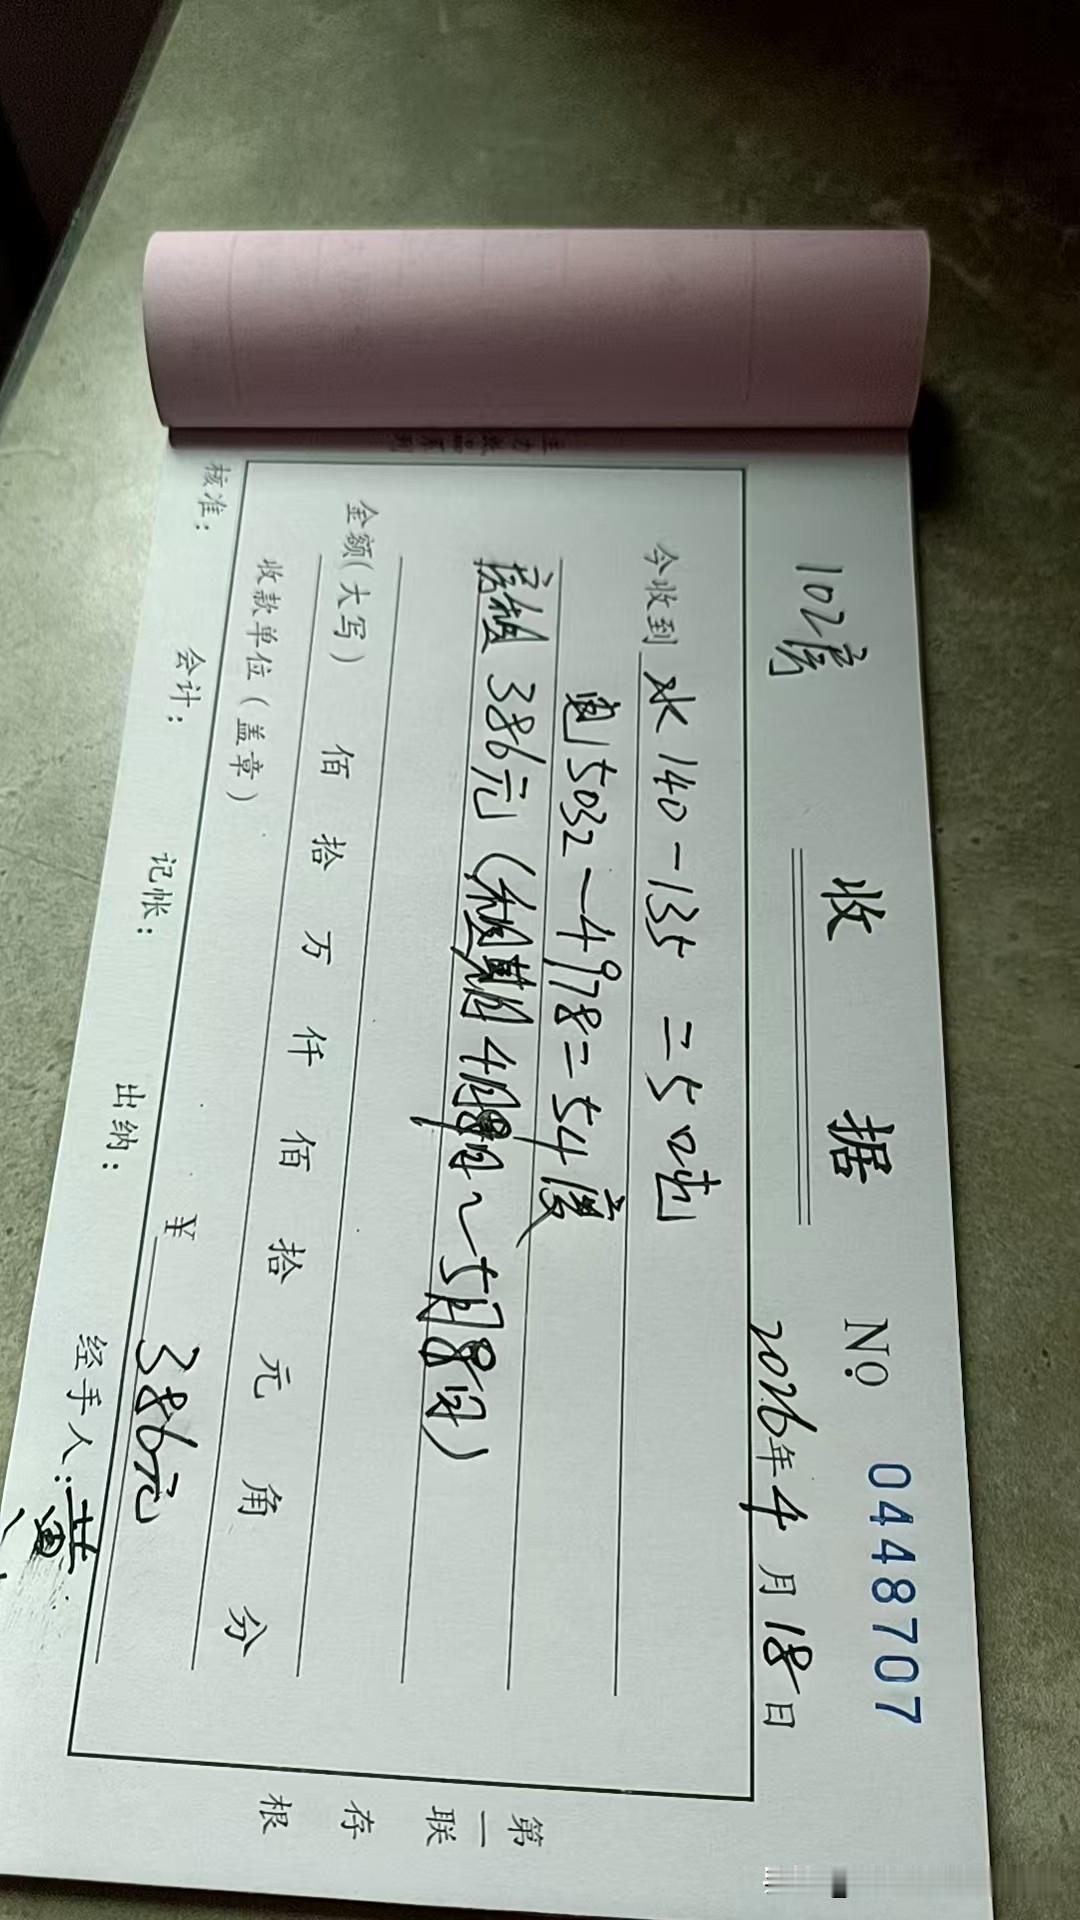 102房
收 据
№ 0448707
2026年4月18日
今收到 水 140-135=5吨
电 5032-4978=54度
房租 386元(租期4月8日~5月8日)
金额(大写) 佰 拾 万 仟 佰 拾 元 角 分
收款单位(盖章) ¥ 386元
核准: 会计: 记帐: 出纳: 经手人:黄
第一联 存根